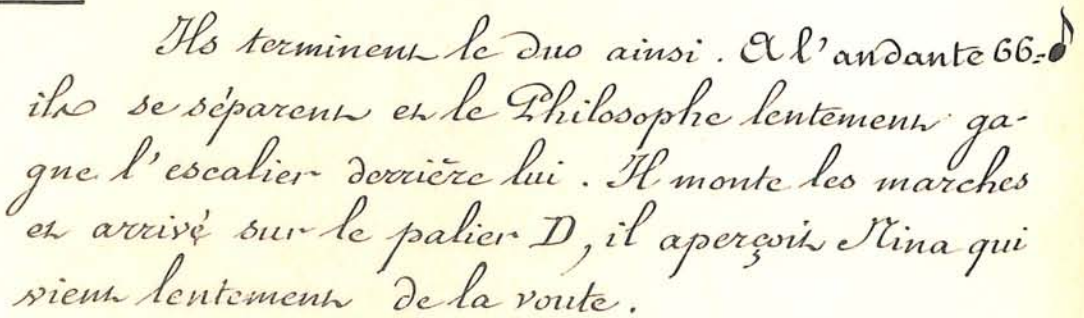 Ils terminent le duo ainsi. A l'andante 66=♪
ils se séparent et le Philosophe lentement ga-
gne l'escalier derrière lui. Il monte les marches
et arrivé sur le palier D, il aperçoit Nina qui
vient lentement de la voute.